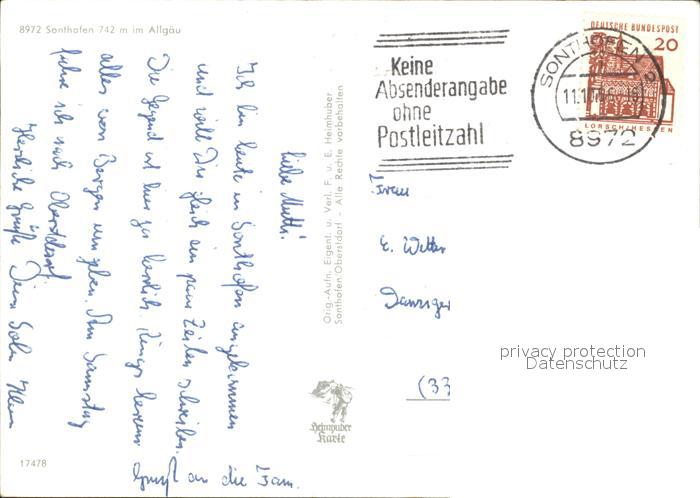 8972 Sonthofen 742 m im Allgäu
Liebe Mutti!
Ich bin heute in Sonthofen angekommen
und will Dir gleich ein paar Zeilen schreiben.
Die Gegend ist hier gar herrlich. Rings herum
alles von Bergen umgeben. Am Samstag
fahre ich nach Oberstdorf.
Herzliche Grüße Dein Sohn
Gruß an die Fam.
17478
Orig.-Aufn. Eigent. u. Verl. F. u. E. Heimhuber
Sonthofen/Oberstdorf - Alle Rechte vorbehalten
Heimhuber
Karte
Keine
Absenderangabe
ohne
Postleitzahl
SONTHOFEN 2
11.1
8972
DEUTSCHE BUNDESPOST
20
LORSCH/HESSEN
Frau
E. Wetter
Danziger
(33
privacy protection
Datenschutz